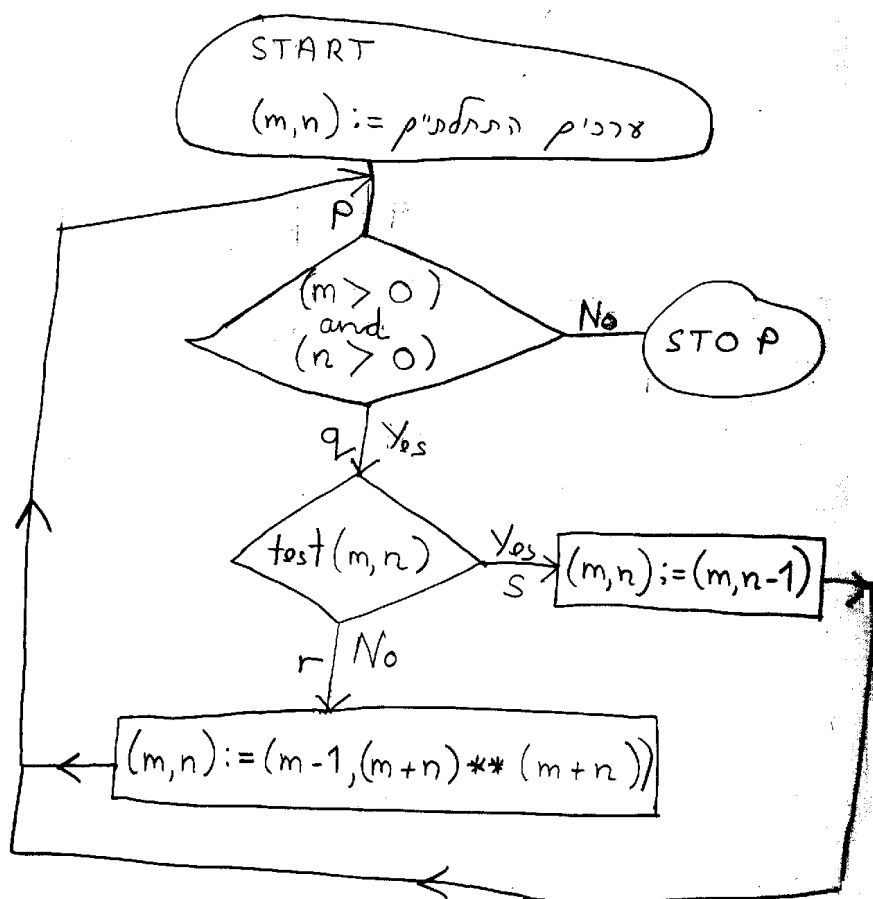 START
(m,n) := ערכים התחלתיים
P
(m > 0)
and
(n > 0)
No
STOP
q Yes
test(m,n)
Yes
S
(m,n) := (m,n-1)
r No
(m,n) := (m-1,(m+n)**(m+n))